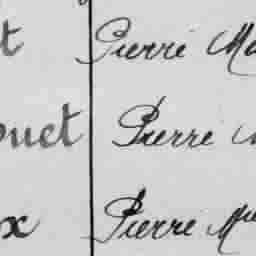 t Pierre
ouet Pierre
x Pierre